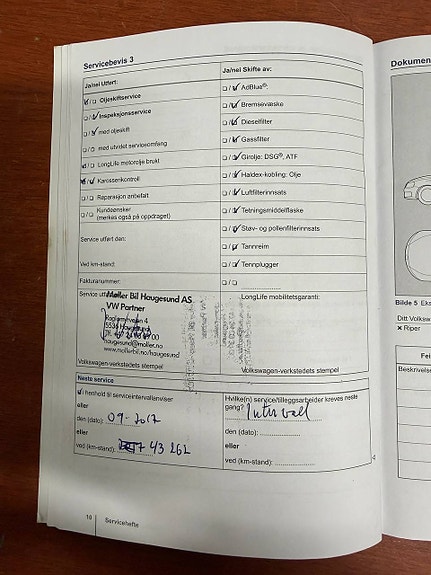 Servicebevis 3
Ja/nei Utført:
Ja/nei Skifte av:
☑/☐ Oljeskiftservice
☐/☑ AdBlue®:
☐/☑ Inspeksjonsservice
☐/☑ Bremsevæske
☐/☑ med oljeskift
☐/☑ Dieselfilter
☐/☐ med utvidet serviceomfang
☐/☑ Gassfilter
☑/☐ LongLife motorolje brukt
☐/☑ Girolje: DSG®, ATF
☑/☑ Karossenkontroll
☐/☑ Haldex-kobling: Olje
☐/☐ Reparasjon anbefalt
☐/☑ Luftfilterinnsats
☐/☐ Kundeønsker
(merkes også på oppdraget)
☐/☑ Tetningsmiddelflaske
☐/☑ Støv- og pollenfilterinnsats
Service utført den:
☐/☑ Tannreim
Ved km-stand:
☐/☑ Tennplugger
Fakturanummer:
☐/☐
Service
LongLife mobilitetsgaranti:
Møller Bil Haugesund AS
VW Partner
4
5536
haugesund@moller.no
www.mollerbil.no/haugesund
Volkswagen-verkstedets stempel
Volkswagen-verkstedets stempel
Neste service
i henhold til serviceintervallenviser
eller
den (dato): 09-2017
eller
ved (km-stand): 43 262
Hvilke(n) service/tilleggsarbeider kreves neste
gang? Intervall
den (dato):
eller
ved (km-stand):
10 Servicehefte
Dokumen
Bilde 5 Eks
Ditt Volksw
× Riper
Fei
Beskrivelse